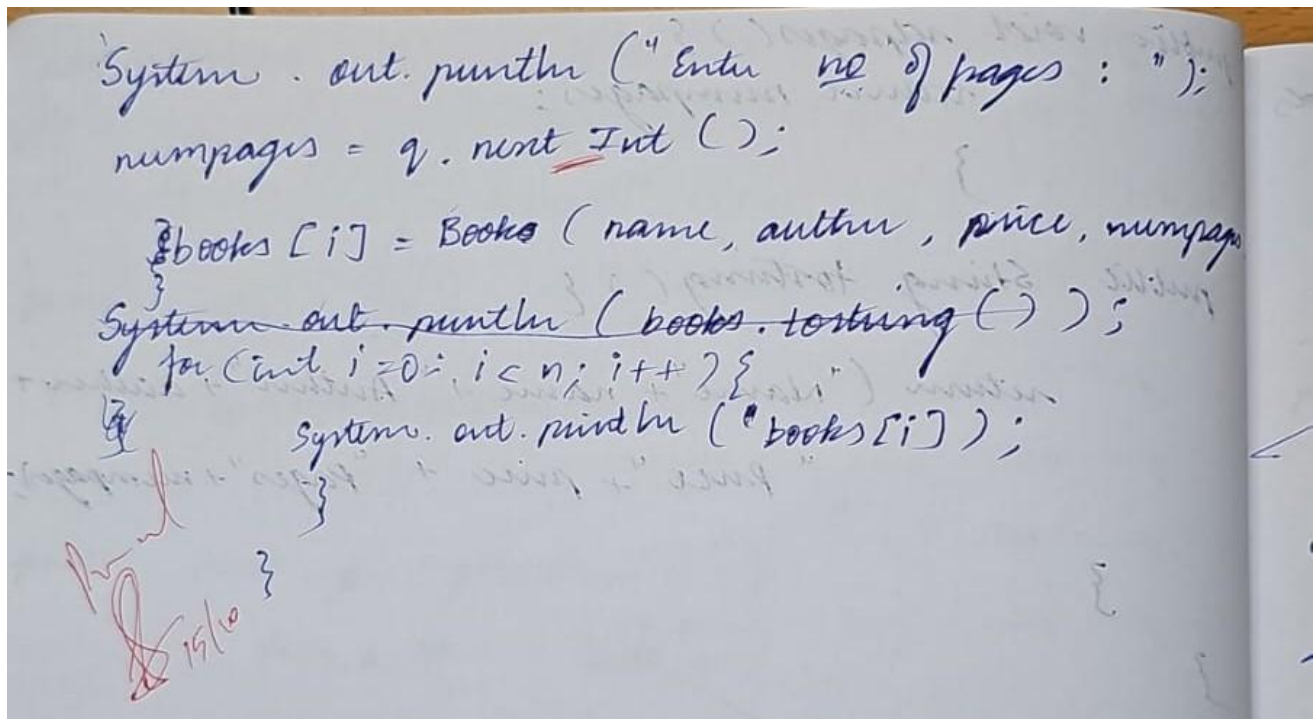 System . out. println ("Enter no of pages : ");
numpages = q. next Int ();
}books [i] = Books ( name, author , price, numpages
}
System . out . println ( books . tostring () ) ;
for (int i =0; i < n; i++ ) {
System. out. println ( books [i] ) ;
}
}
15/10